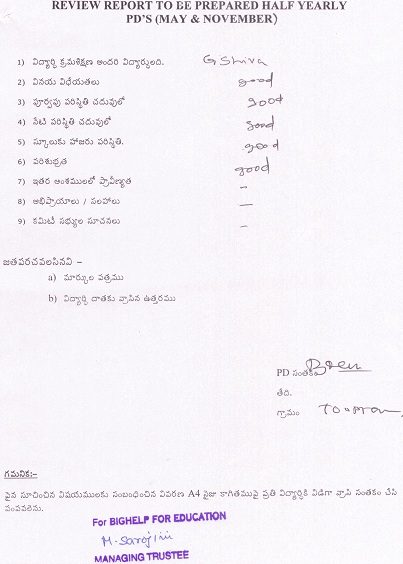 REVIEW REPORT TO BE PREPARED HALF YEARLY
PD'S (MAY & NOVEMBER)
1) విద్యార్థి క్రమశిక్షణ అందరి విద్యార్థులది. G Shiva
2) వినయ విధేయతలు good
3) పూర్వపు పరిస్థితి చదువులో good
4) నేటి పరిస్థితి చదువులో good
5) స్కూలుకు హాజరు పరిస్థితి. good
6) పరిశుభ్రత good
7) ఇతర అంశములలో ప్రావీణ్యత –
8) అభిప్రాయాలు / సలహాలు –
9) కమిటీ సభ్యుల సూచనలు –
జతపరచవలసినవి –
a) మార్కుల పత్రము
b) విద్యార్థి దాతకు వ్రాసిన ఉత్తరము
PD సంతకం
తేది.
గ్రామం
గమనిక:-
పైన సూచించిన విషయములకు సంబంధించిన వివరణ A4 సైజు కాగితముపై ప్రతి విద్యార్థికి విడిగా వ్రాసి సంతకం చేసి
పంపవలెను.
For BIGHELP FOR EDUCATION
M. Sarojini
MANAGING TRUSTEE